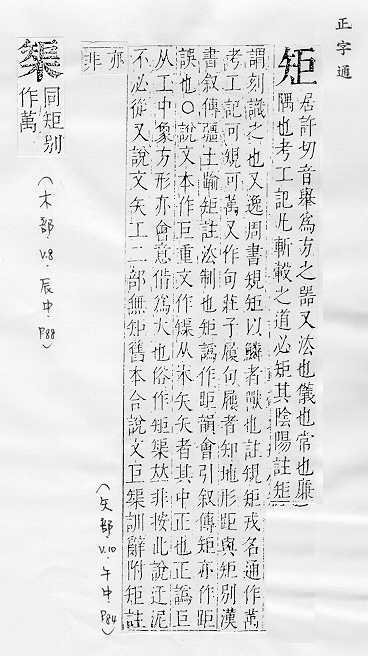 正字通
矩
居許切音舉爲方之器又法也儀也常也廉
隅也考工記凡斬轂之道必矩其陰陽註矩
謂刻識之也又逸周書規矩以麟者獸也註規矩戎名通作萬
考工記可規可萬又作句莊子履句屨者知地形距與矩別漢
書叙傳疆土踰矩註法制也矩譌作距韻會引叙傳矩亦作距
誤也〇說文本作巨重文作榘从木矢矢者其中正也正譌巨
从工中象方形亦會意借爲大也俗作矩榘𠀤非按此說迂泥
不必從又說文矢工二部無矩舊本合說文巨榘訓辭附矩註
亦
非
榘
同矩別
作萬
(木部 V.8. 辰中. P88)
(矢部 V.10 午中. P84)